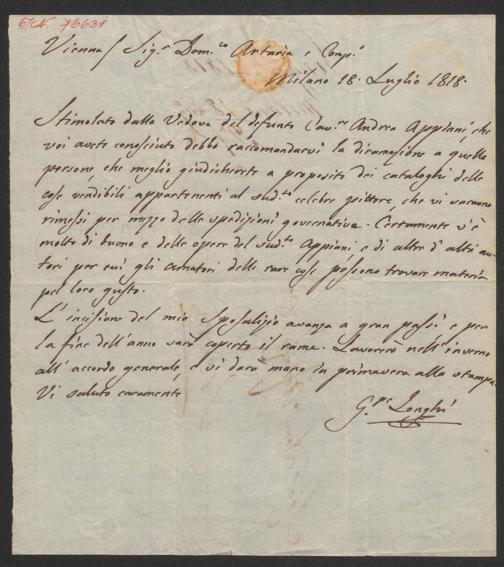 76631
Vienna / Sig.r Dom.co Artaria e Comp.i
Milano 18. Luglio 1818.
Stimolato dalla Vedova del defunto Cav.r Andrea Appiani, che
voi avete conosciuto debbo raccomandarvi la diramazione a quelle
persone, che meglio giudicherete a proposito dei cataloghi delle
cose vendibili appartenenti al sud.to celebre pittore, che vi saranno
rimessi per mezzo delle spedizioni governative. Certamente v'è
molto di buono e delle opere del sud.to Appiani e di altre d'altri au-
tori per cui gli amatori delle rare cose possono trovare materia
pel loro gusto.
L'incisione del mio Sposalizio avanza a gran passi, e per
la fine dell'anno sarà coperto il rame. Lavorerò nell'inverno
all'accordo generale, e vi darò mano in primavera alla stampa.
Vi saluto caramente
G.pe Longhi